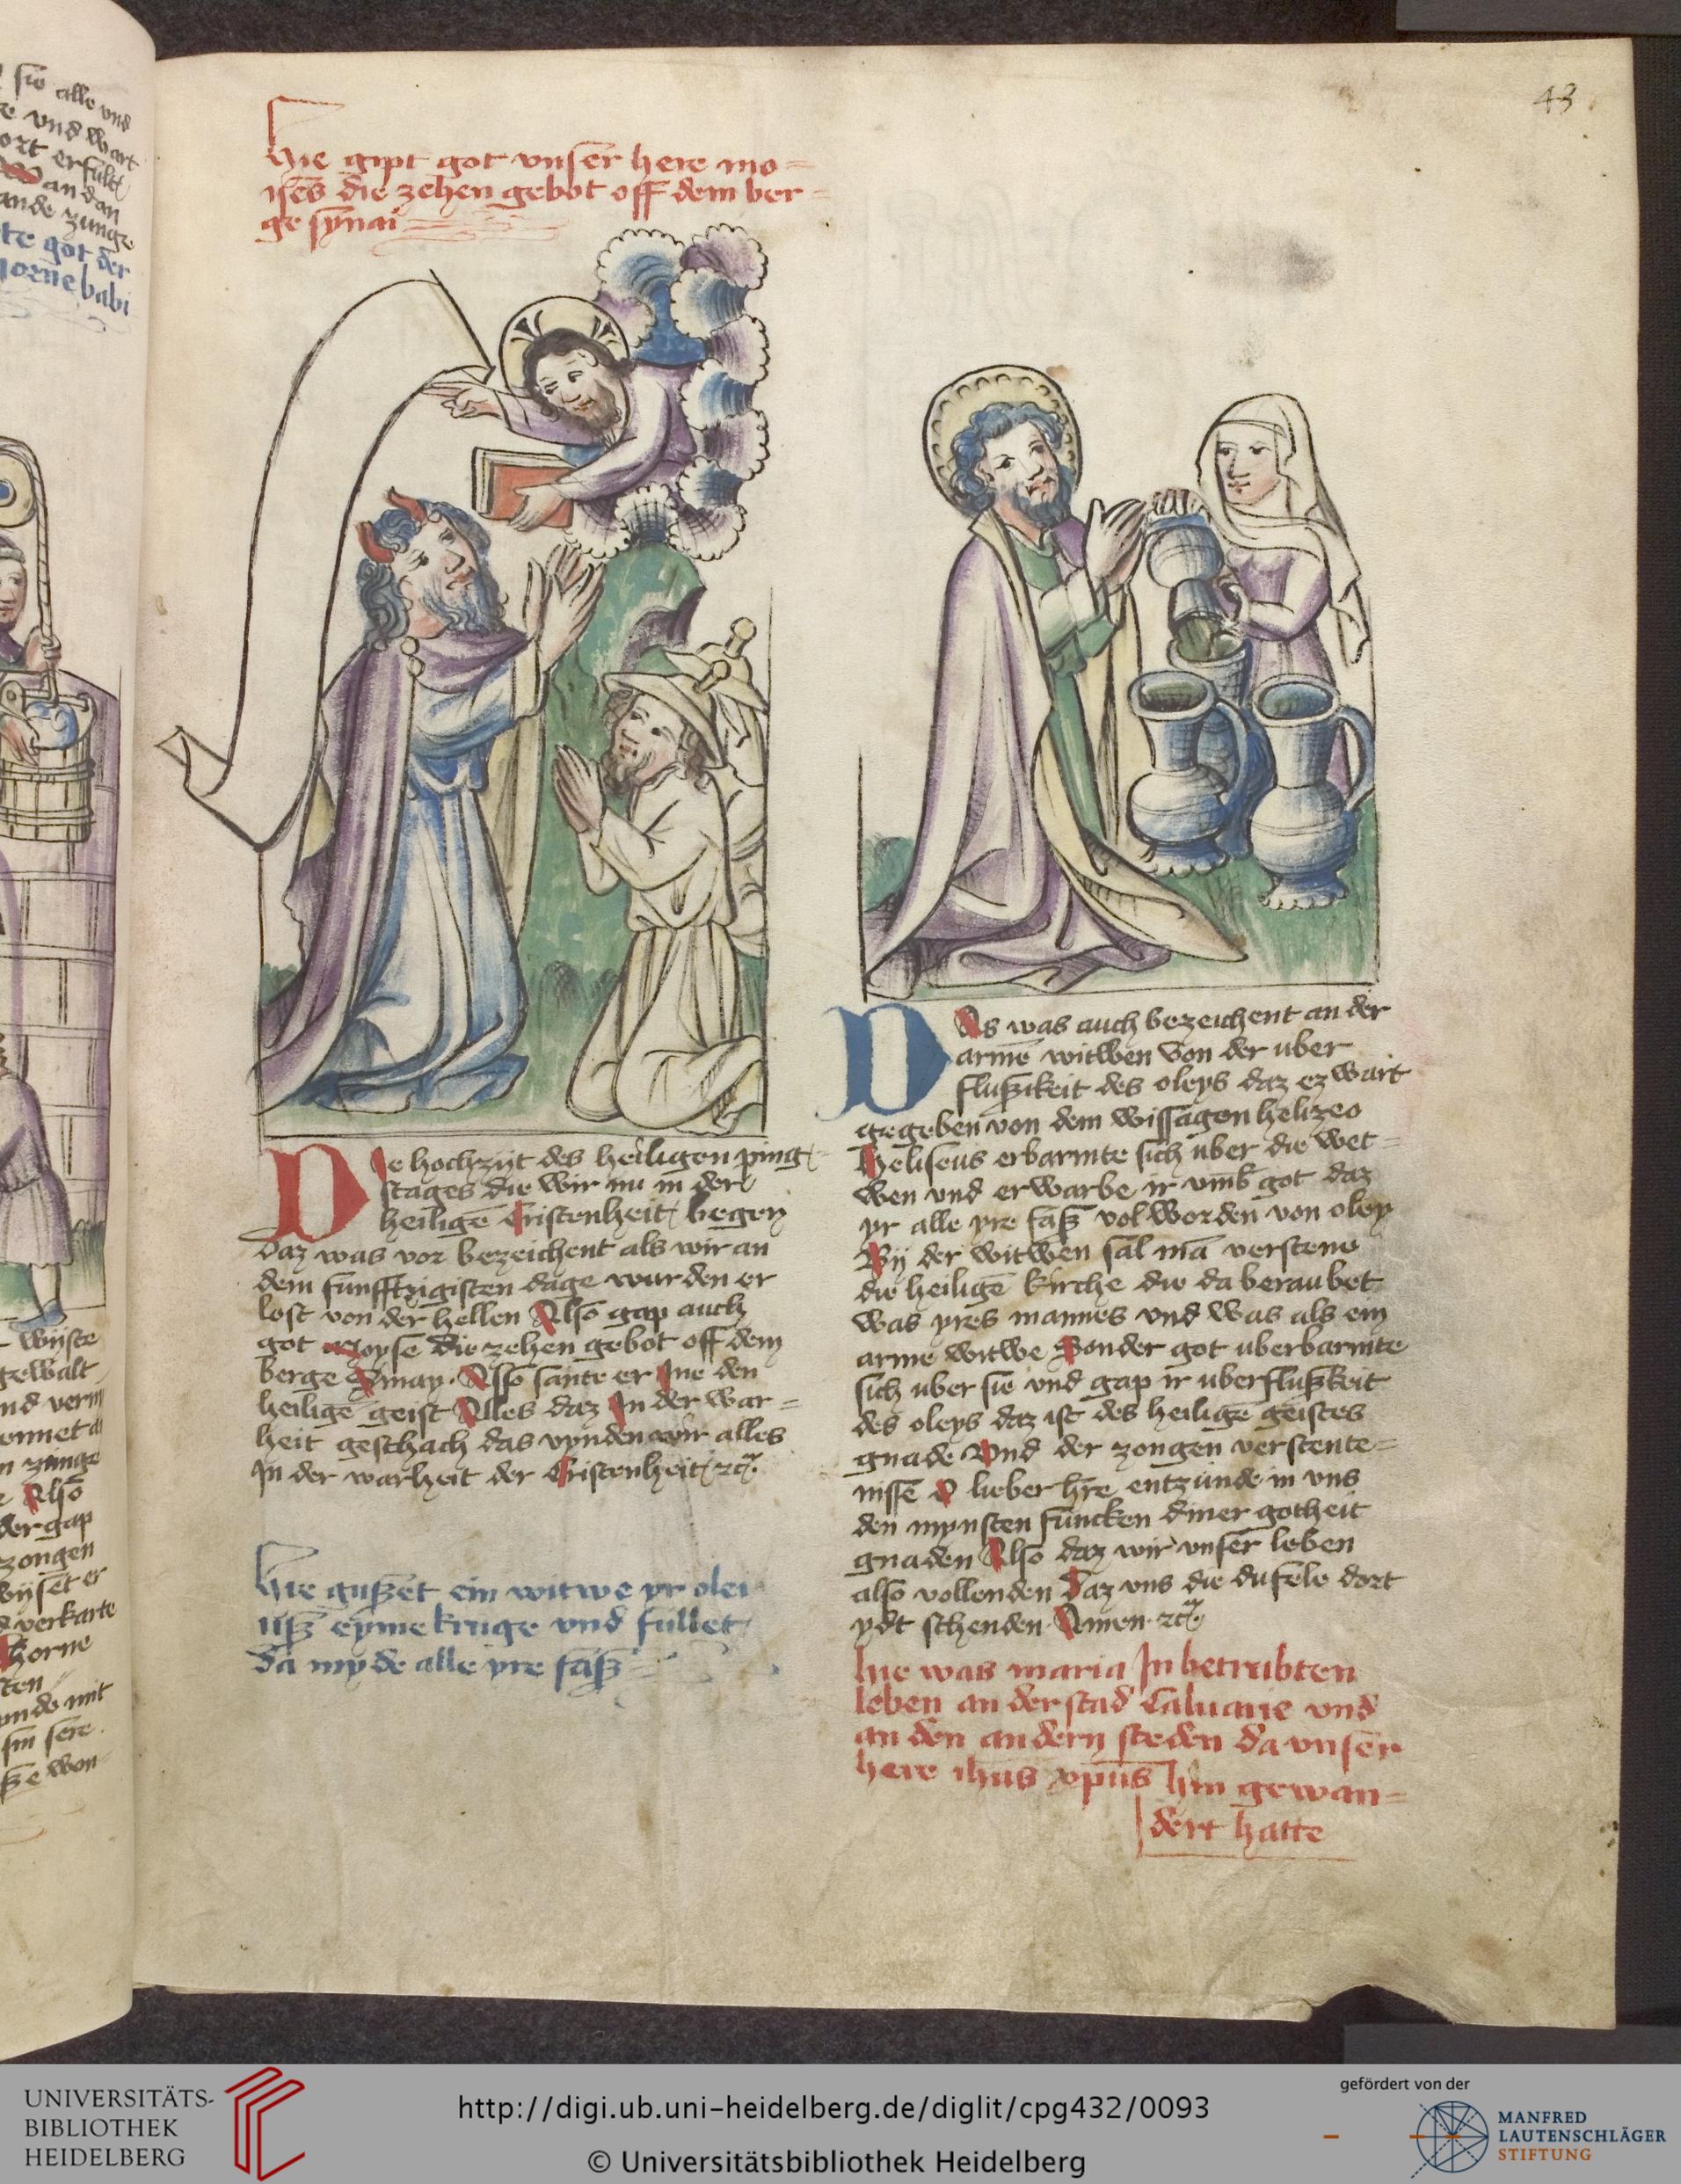 43
Hie gipt got vnser here mo-
ises die zehen gebot off dem ber-
ge synai
Die hochzijt des heiligen ping-
stages die wir nu in der
heiligē Cristenheit begen
Daz was vor bezeichent als wir an
dem funfftzigisten dage wurden er
lost von der hellen Also gap auch
got Moyse die zehen gebot off dem
berge Synay. Also sante er Ine den
heiligē geist Alles daz In der war=
heit geschach das vynden wir alles
In der warheit der Cristenheit
Hie gußet ein witwe yr olei
uß eyme kruge vnd fullet
Da myde alle yre faß
Das was auch bezeichent an der
armē witwen von der uber
flußikeit des oleys daz ez wart
gegeben von dem wissagen helizeo
Heliseus erbarmte sich uber die wet=
wen vnd erwarbe ir vmb got daz
yr alle yre faß vol worden von oley
By der witwen sal mā verstene
die heiligē kirche die da beraubet
was yres mannes vnd was als ein
arme witwe Sonder got uberbarmte
sich uber sie vnd gap ir uberflußkeit
des oleys daz ist des heiligē geistes
gnade Vnd der zongen verstente=
nisse O lieber hre entzunde in vns
den mynsten funcken diner gotheit
gnaden Also daz wir vnser leben
also vollenden Daz vns die dufele dort
ydt schenden. Amen.
Hie was maria In betrubten
leben an der stad Caluarie vnd
an den andern steden da vnser
here ihus xpus hin gewan=
dert hatte
UNIVERSITÄTS-
BIBLIOTHEK
HEIDELBERG
http://digi.ub.uni-heidelberg.de/diglit/cpg432/0093
© Universitätsbibliothek Heidelberg
gefördert von der
MANFRED
LAUTENSCHLÄGER
STIFTUNG